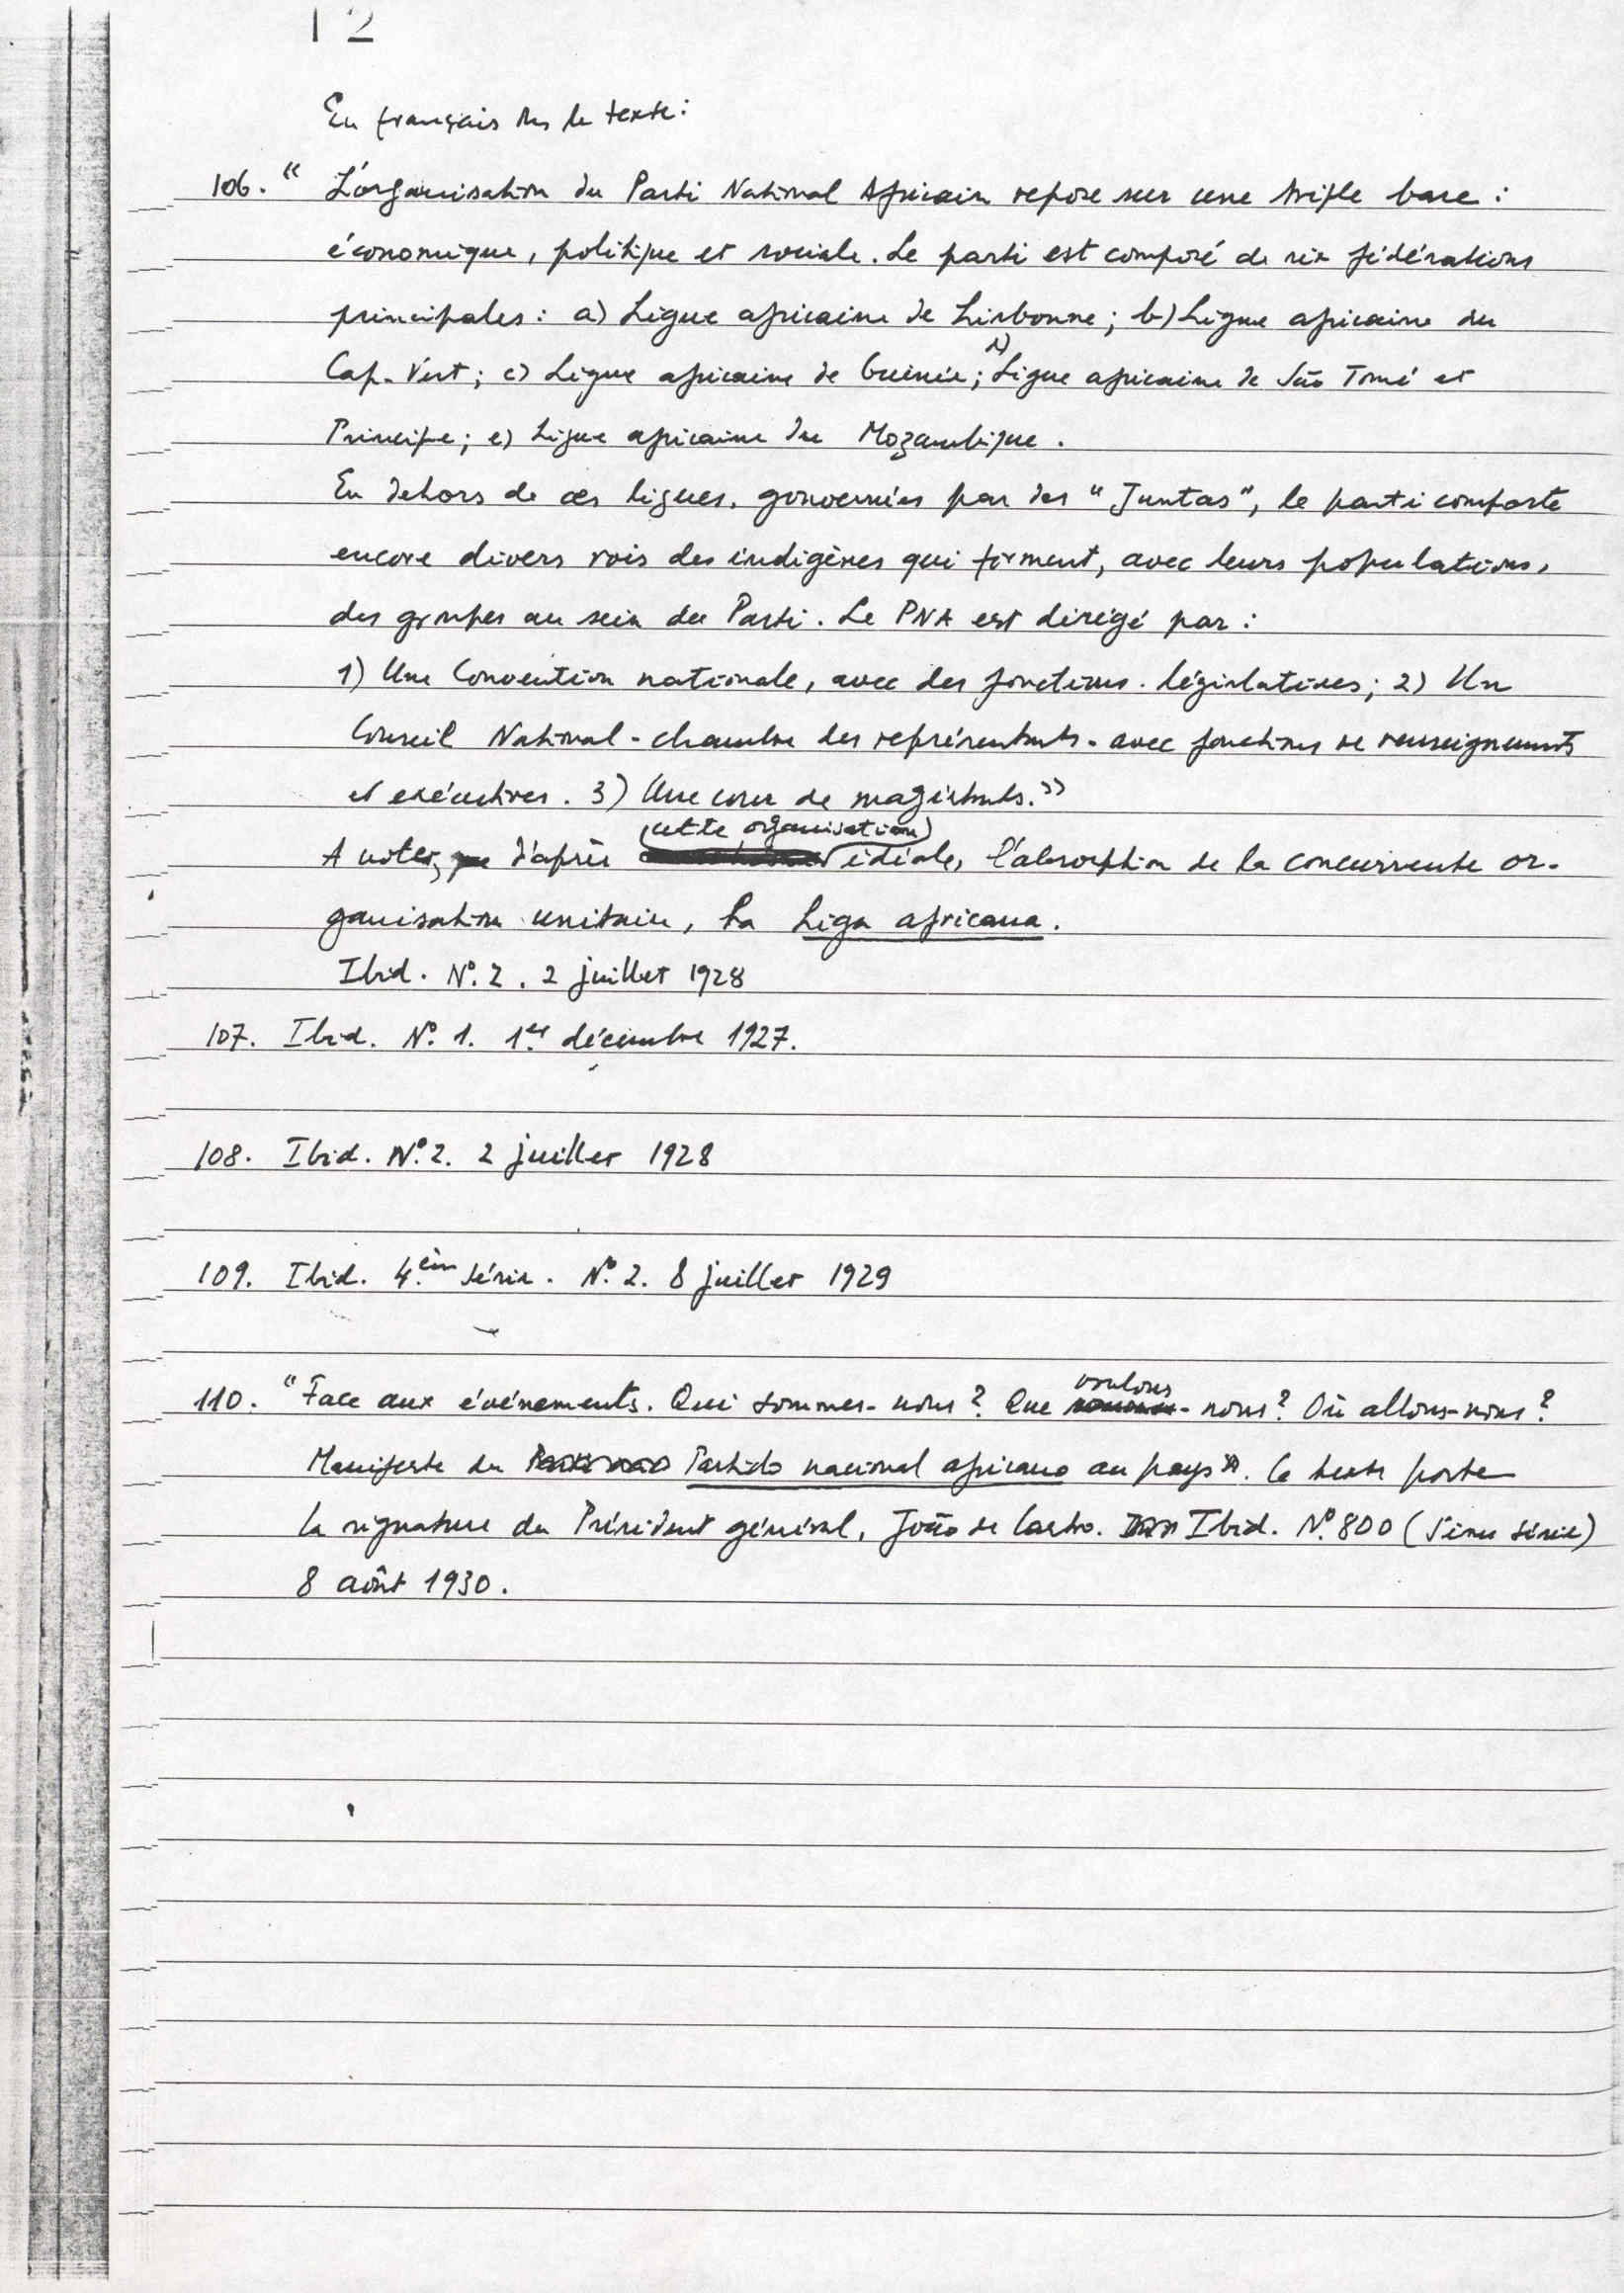 12
En français ds le texte:
106. " L'organisation du Parti National Africain repose sur une triple base :
économique, politique et sociale. Le parti est composé de six fédérations
principales : a) Ligue africaine de Lisbonne ; b) Ligue africaine du
Cap-Vert ; c) Ligue africaine de Guinée ; d) Ligue africaine de São Tomé et
Principe ; e) Ligue africaine du Mozambique.
En dehors de ces ligues, gouvernées par des "Juntas", le parti comporte
encore divers rois des indigènes qui forment, avec leurs populations,
des groupes au sein du Parti. Le PNA est dirigé par :
1) Une Convention nationale, avec des fonctions législatives ; 2) Un
Conseil National - chambre des représentants - avec fonctions de renseignements
et exécutives. 3) Une cour de magistrats."
A noter, d'après cette organisation idéale, l'absorption de la concurrente or-
ganisation unitaire, la Liga africana.
Ibid. Nº. 2. 2 juillet 1928
107. Ibid. Nº 1. 1er décembre 1927.
108. Ibid. Nº. 2. 2 juillet 1928
109. Ibid. 4.èm série. Nº. 2. 8 juillet 1929
110. "Face aux événements. Qui sommes-nous ? Que voulons-nous ? Où allons-nous ?
Manifeste du Partido nacional africano au pays". Ce texte porte
la signature du Président général, João de Castro. Ibid. Nº. 800 (5ème série)
8 août 1930.